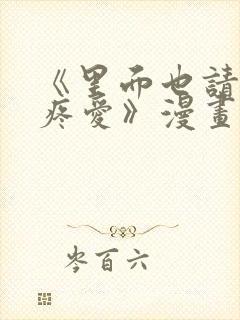 《里而也請
疼愛》漫畫
岑百六